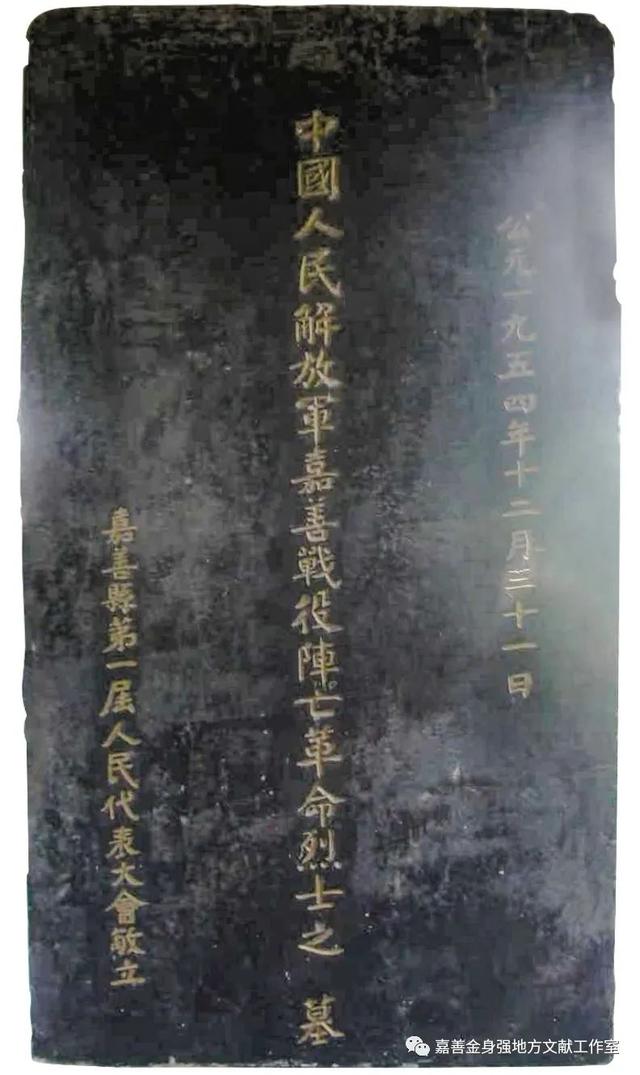 公元一九五四年十二月三十一日
中國人民解放軍嘉善戰役陣亡革命烈士之墓
嘉善縣第一屆人民代表大會敬立
嘉善金身强地方文献工作室